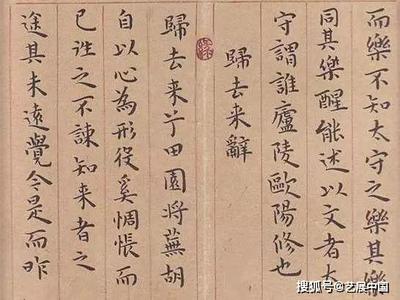 而樂不知太守之樂其樂
同其樂醒能述以文者太
守謂誰廬陵歐陽修也
歸去来辭
歸去来兮田園将蕪胡
自以心為形役奚惆悵而
已往之不諫知来者之
途其未遠覺今是而昨
搜狐号@艺展中国